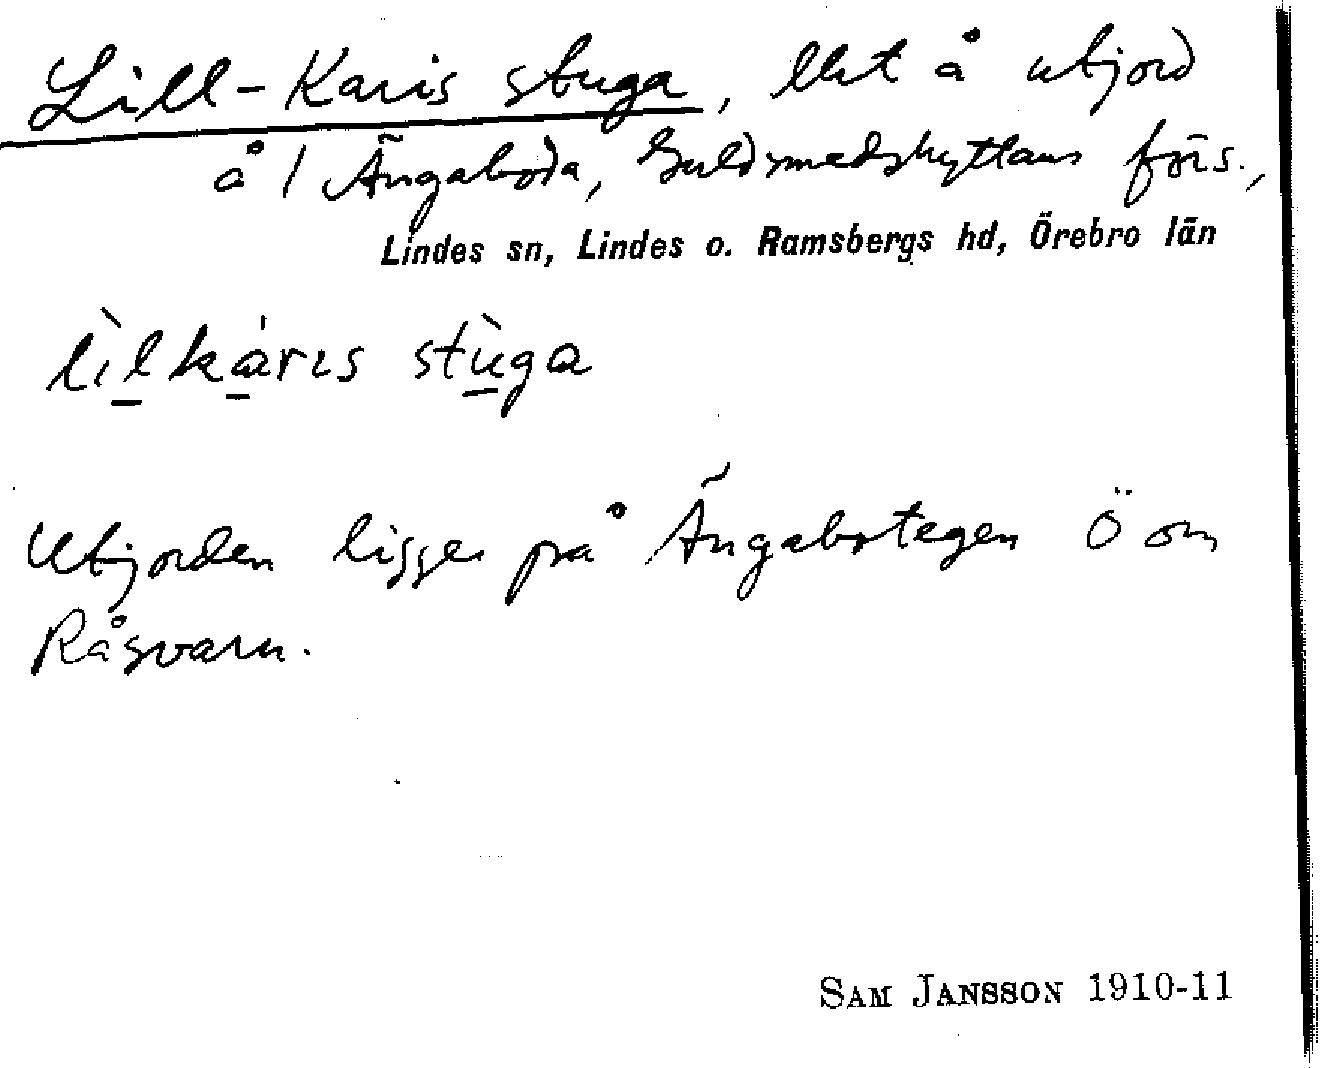 Lill-Karis stuga, lht å utjord
å 1 Ängaboda, Guldsmedshyttans förs.,
Lindes sn, Lindes o. Ramsbergs hd, Örebro län
lìlkáris stùga
Utjorden ligger på Ängabotegen Ö om
Råsvarn.
SAM JANSSON 1910-11